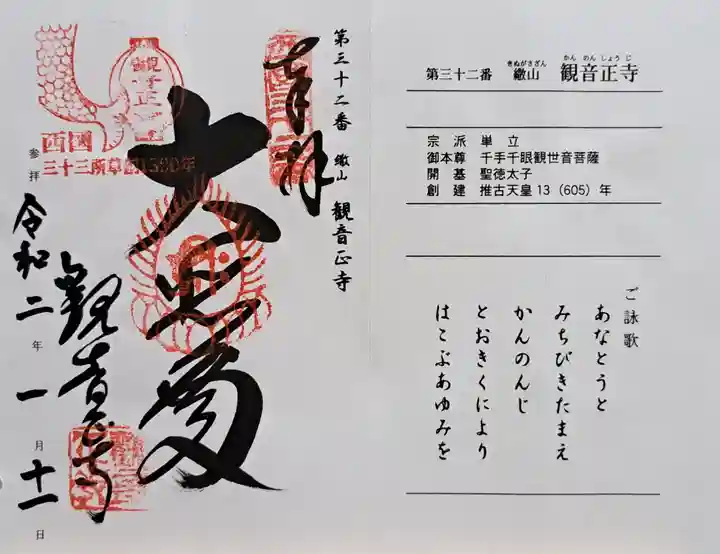 きぬがさざん かんのんしょうじ
第三十二番 繖山 観音正寺
宗派 単立
御本尊 千手千眼観世音菩薩
開基 聖徳太子
創建 推古天皇13（605）年
ご詠歌
あなとうと
みちびきたまえ
かんのんじ
とおきくにより
はこぶあゆみを
第三十二番 繖山 観音正寺
奉拝
大悲殿
観音正寺
西國
三十三所草創1300年
参拝 令和二年一月十一日